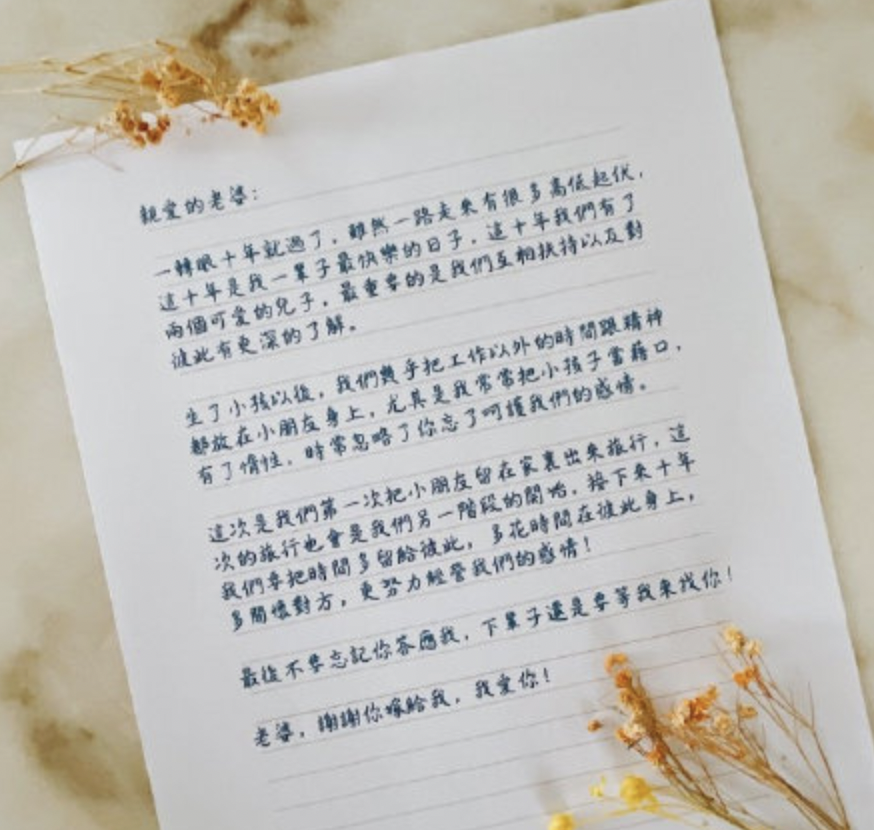 親愛的老婆：
一轉眼十年就過了，雖然一路走來有很多高低起伏，
這十年是我一輩子最快樂的日子，這十年我們有了
兩個可愛的兒子，最重要的是我們互相扶持以及對
彼此有更深的了解。
生了小孩以後，我們幾乎把工作以外的時間跟精神
都放在小朋友身上，尤其是我常常把小孩子當藉口，
有了惰性，時常忽略了你忘了呵護我們的感情。
這次是我們第一次把小朋友留在家裏出來旅行，這
次的旅行也會是我們另一階段的開始，接下來十年
我們要把時間多留給彼此，多花時間在彼此身上，
多關懷對方，更努力經營我們的感情！
最後不要忘記你答應我，下輩子還是要等我來找你！
老婆，謝謝你嫁給我，我愛你！